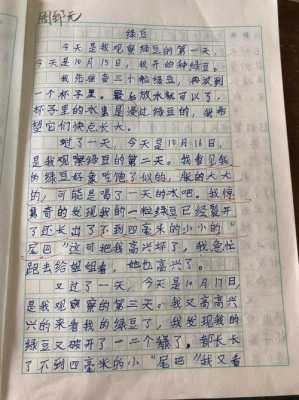 周郅元
绿豆
今天是我观察绿豆的第一天，
今天是10月15日，我开始种绿豆。
我先准备三个粒绿豆，再放到
一个杯子里。最后放水就可以了，
杯子里的水里是没过绿豆的，我希
望它们快点长大。
过了一天，今天是10月16日，
是我观察绿豆的第二天。我看见我
的绿豆好象吃饱了似的，胀的大大
的，可能是喝了一天的水吧。我惊
奇的发现我的一粒绿豆已经裂开
了还长出了不到四毫米的小小的“
尾巴”这可把我高兴坏了，我急忙
跑去给姐姐看，她也高兴了。
又过了一天，今天是10月17日，
是我观察的第三天。我又高高兴
兴的来看我的绿豆了，我发现我的
绿豆又破开了一二个绿了。都长长
了不到四毫米的小“尾巴”我又看